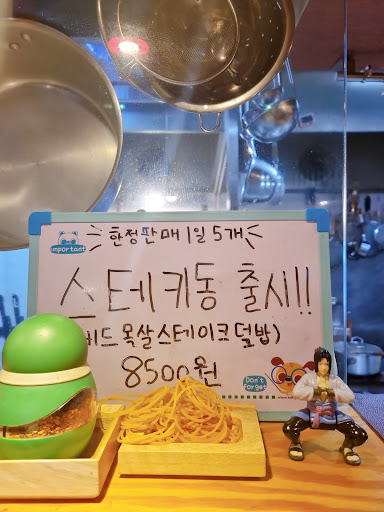 한정판매 1일 5개
important
스테키동 출시!!
드 목살스테이크덮밥)
8500원
Don't
forget